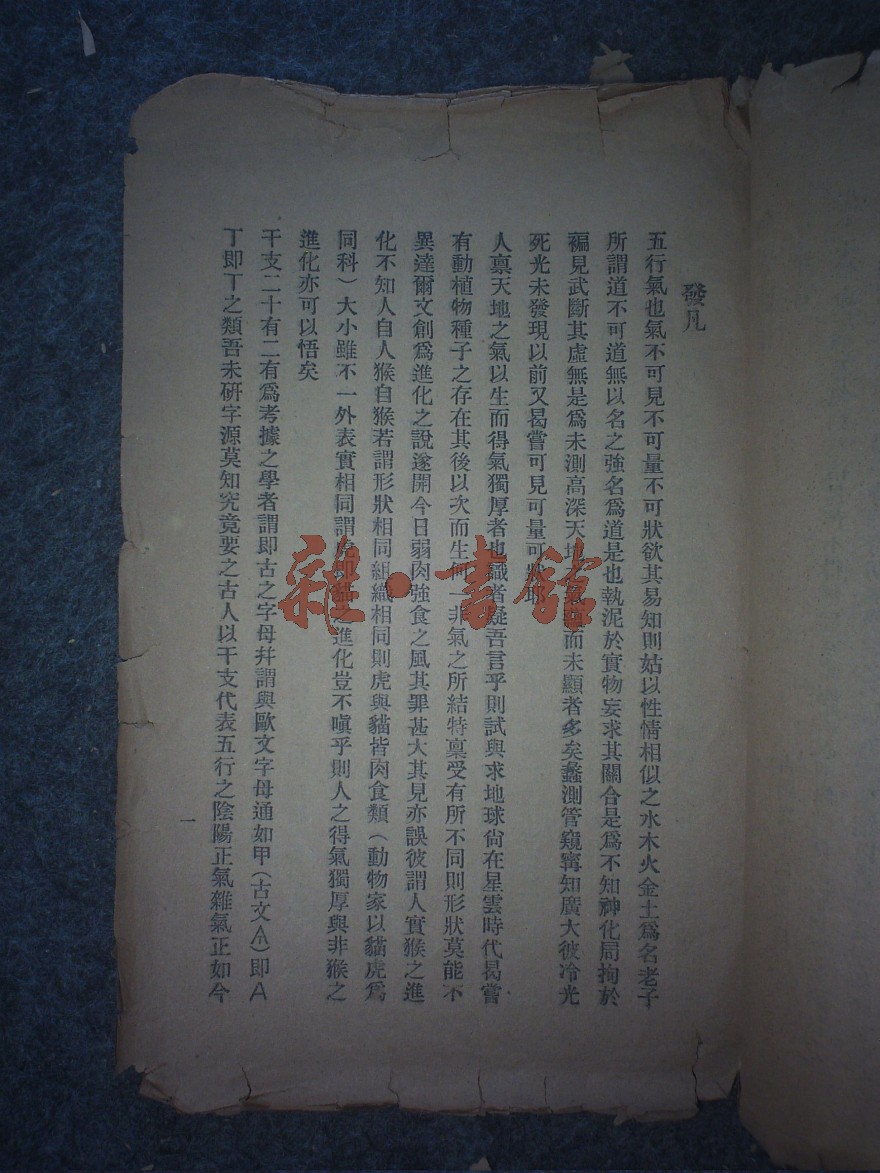 發凡
五行氣也氣不可見不可量不可狀欲其易知則姑以性情相似之水木火金土爲名老子
所謂道不可道無以名之強名爲道是也執泥於實物妄求其關合是爲不知神化局拘於
褊見武斷其虛無是爲未測高深天地之氣 而未顯者多矣蠡測管窺寗知廣大彼冷光
死光未發現以前又曷嘗可見可量可狀耶
人禀天地之氣以生而得氣獨厚者也識者疑吾言乎則試與求地球尙在星雲時代曷嘗
有動植物種子之存在其後以次而生何一非氣之所結特禀受有所不同則形狀莫能不
異達爾文創爲進化之說遂開今日弱肉強食之風其罪甚大其見亦誤彼謂人實猴之進
化不知人自人猴自猴若謂形狀相同組織相同則虎與貓皆肉食類（動物家以貓虎爲
同科）大小雖不一外表實相同謂虎即貓之進化豈不嗔乎則人之得氣獨厚與非猴之
進化亦可以悟矣
干支二十有二有爲考據之學者謂即古之字母幷謂與歐文字母通如甲（古文）即A
丁即丁之類吾未研字源莫知究竟要之古人以干支代表五行之陰陽正氣雜氣正如今
一
雜·書館